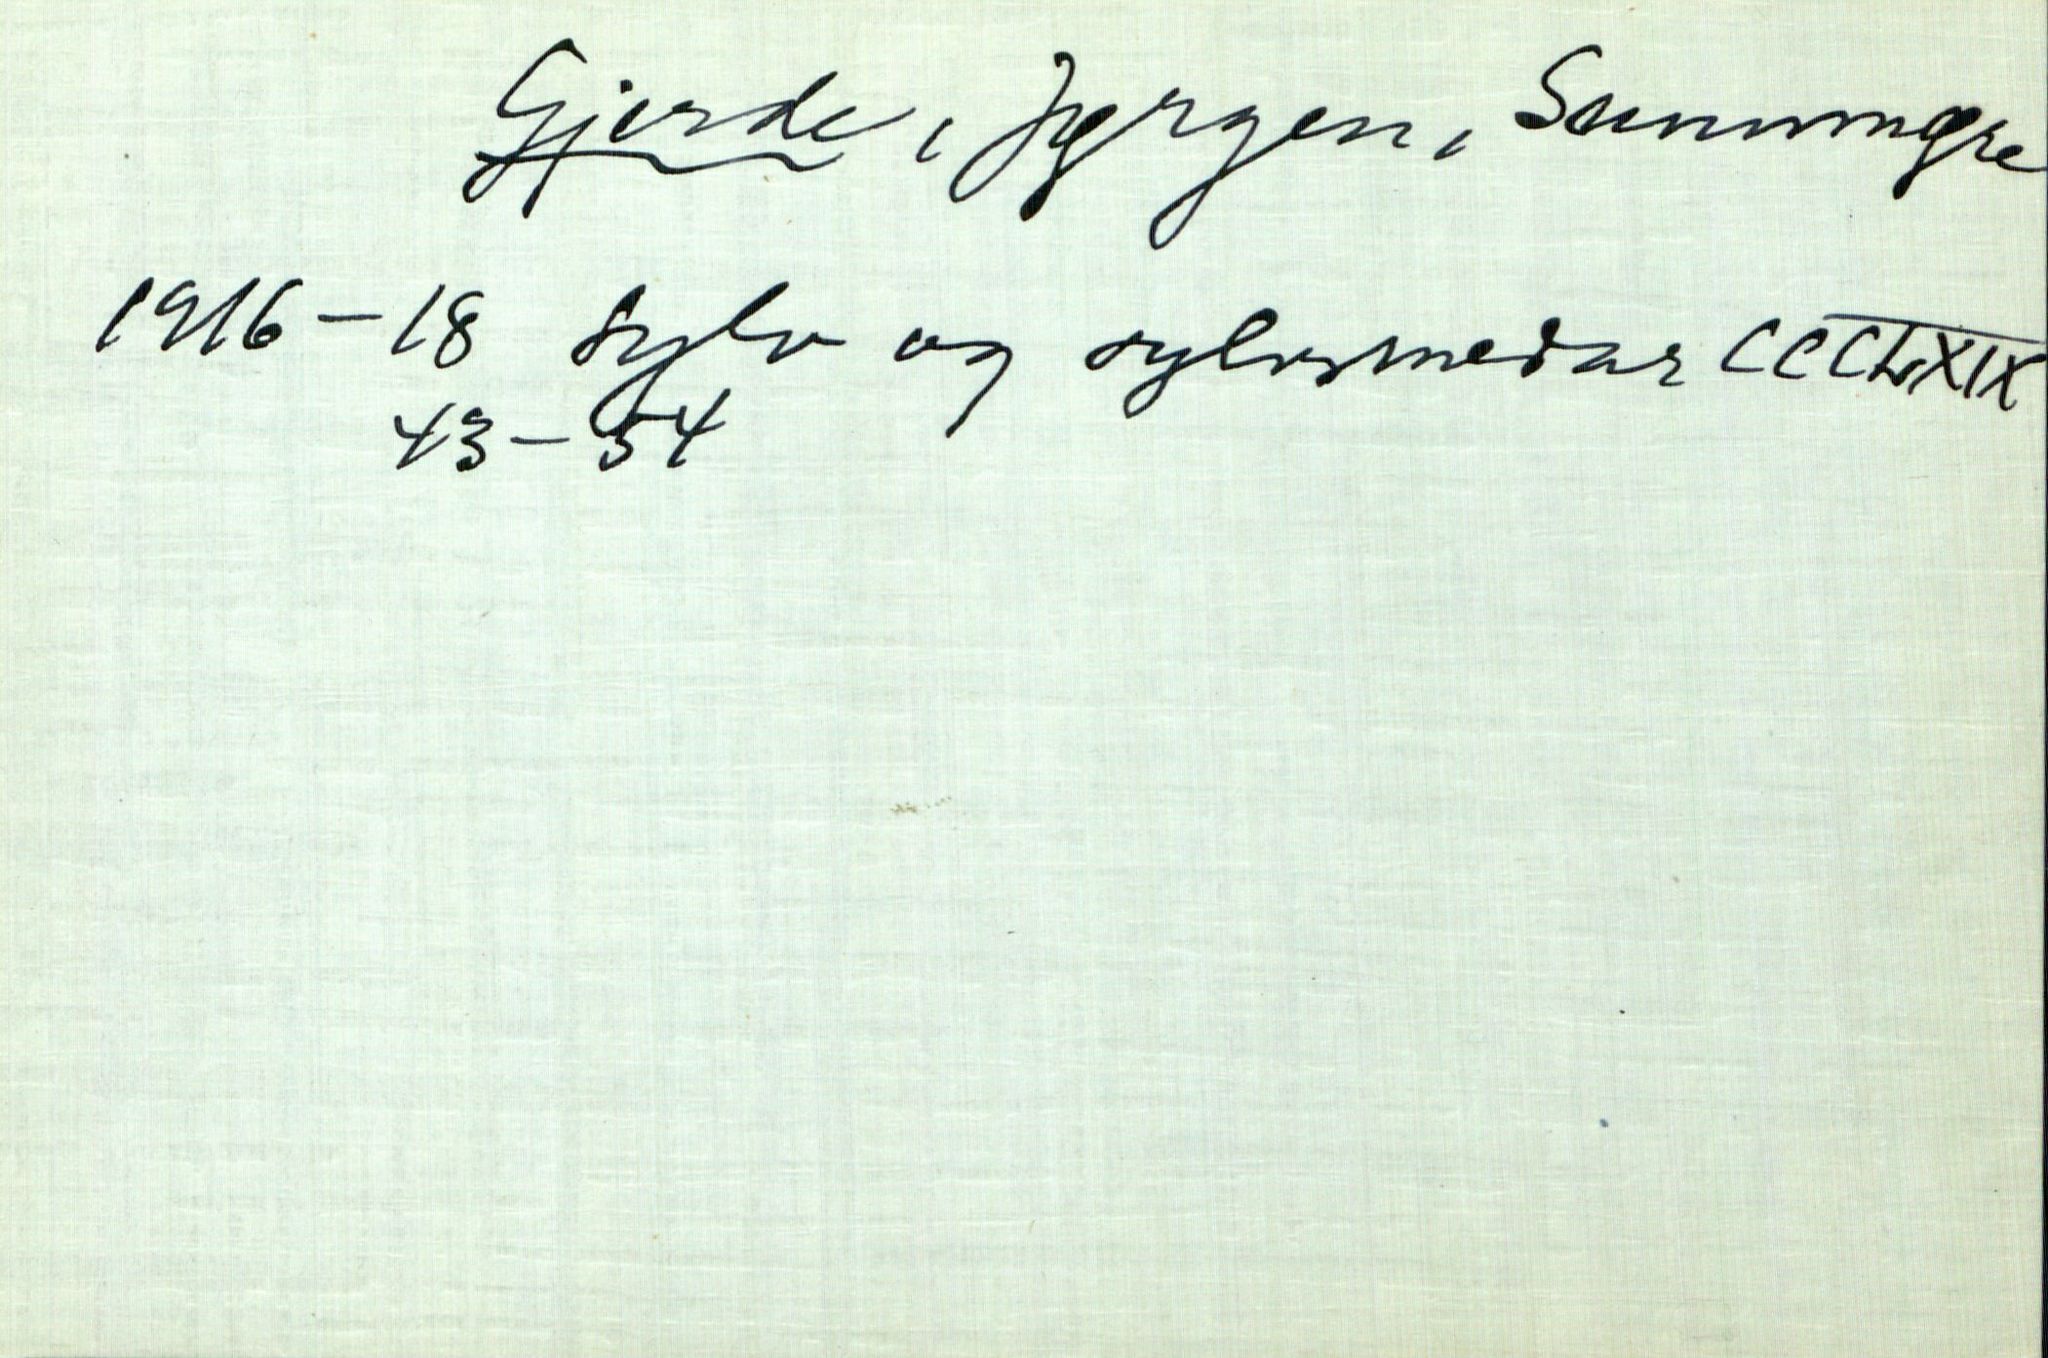 Gjerde, Jørgen, Sunnmøre
1916-18 Sylv og sylvsmedar CCCLXIX
43-54